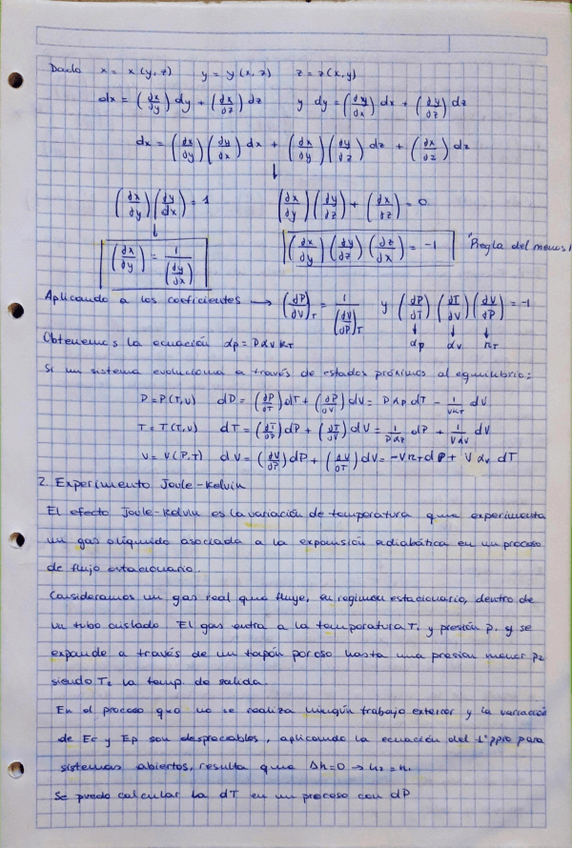 Dado x = x(y,z) y = y(x,z) z = z(x,y)
dx = (∂x/∂y) dy + (∂x/∂z) dz y dy = (∂y/∂x) dx + (∂y/∂z) dz
dx = (∂x/∂y)(∂y/∂x) dx + (∂x/∂y)(∂y/∂z) dz + (∂x/∂z) dz
↓
(∂x/∂y)(∂y/∂x) = 1 (∂x/∂y)(∂y/∂z) + (∂x/∂z) = 0
↓
(∂x/∂y) = 1/(∂y/∂x) (∂x/∂y)(∂y/∂z)(∂z/∂x) = -1 "Regla del menos 1
Aplicando a los coeficientes → (∂P/∂V)T = 1/(∂V/∂P)T y (∂P/∂T)(∂T/∂V)(∂V/∂P) = -1
↓ ↓ ↓
αp αv κT
Obtenemos la ecuación αp = P αv κT
Si un sistema evoluciona a través de estados próximos al equilibrio:
P = P(T,V) dP = (∂P/∂T) dT + (∂P/∂V) dV = P αp dT - 1/(VκT) dV
T = T(P,V) dT = (∂T/∂P) dP + (∂T/∂V) dV = 1/(P αp) dP + 1/(V αv) dV
V = V(P,T) dV = (∂V/∂P) dP + (∂V/∂T) dT = -V κT dP + V αv dT
2. Experimento Joule-Kelvin
El efecto Joule-Kelvin es la variación de temperatura que experimenta
un gas o líquido asociada a la expansión adiabática en un proceso
de flujo estacionario.
Consideramos un gas real que fluye, en regimen estacionario, dentro de
un tubo aislado. El gas entra a la temperatura T₁ y presión p₁ y se
expande a través de un tapón poroso hasta una presión menor p₂
siendo T₂ la temp. de salida.
En el proceso que no se realiza ningún trabajo exterior y la variación
de Ec y Ep son despreciables, aplicando la ecuación del 1° ppio para
sistemas abiertos, resulta que Δh=0 → h₂ = h₁
Se puede calcular la dT en un proceso con dP